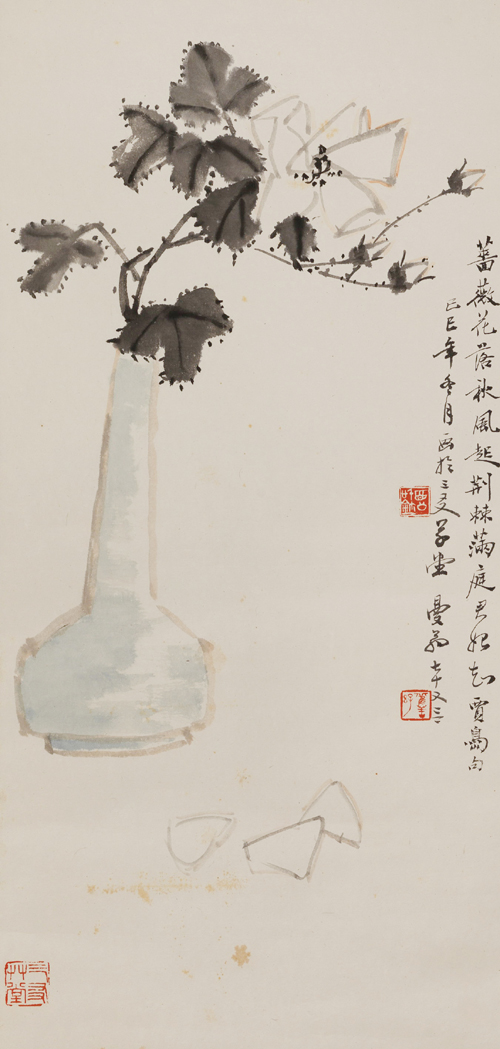 薔薇花落秋風起荆棘滿庭君始知賈島句
己巳年冬月画於三友草堂曼翁七十又三
三友艸堂